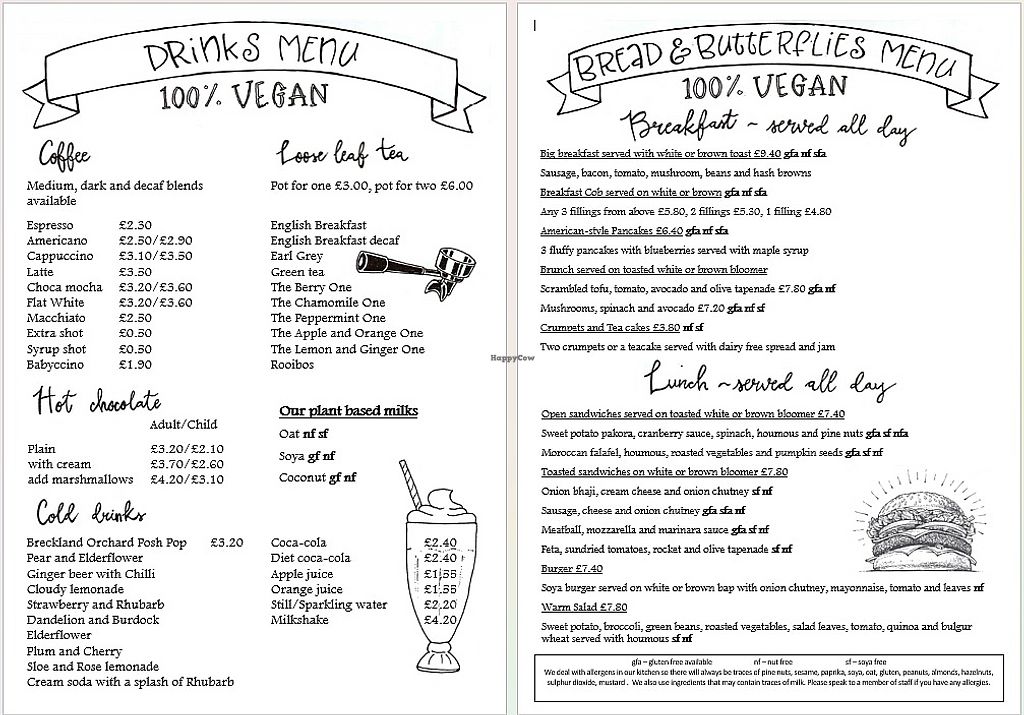 DRINKS MENU
100% VEGAN
Coffee
Medium, dark and decaf blends
available
Espresso £2.30
Americano £2.50/£2.90
Cappuccino £3.10/£3.50
Latte £3.50
Choca mocha £3.20/£3.60
Flat White £3.20/£3.60
Macchiato £2.50
Extra shot £0.50
Syrup shot £0.50
Babyccino £1.90
Loose leaf tea
Pot for one £3.00, pot for two £6.00
English Breakfast
English Breakfast decaf
Earl Grey
Green tea
The Berry One
The Chamomile One
The Peppermint One
The Apple and Orange One
The Lemon and Ginger One
Rooibos
Hot chocolate
Adult/Child
Plain £3.20/£2.10
with cream £3.70/£2.60
add marshmallows £4.20/£3.10
Our plant based milks
Oat nf sf
Soya gf nf
Coconut gf nf
Cold drinks
Breckland Orchard Posh Pop £3.20
Pear and Elderflower
Ginger beer with Chilli
Cloudy lemonade
Strawberry and Rhubarb
Dandelion and Burdock
Elderflower
Plum and Cherry
Sloe and Rose lemonade
Cream soda with a splash of Rhubarb
Coca-cola £2.40
Diet coca-cola £2.40
Apple juice £1.55
Orange juice £1.55
Still/Sparkling water £2.20
Milkshake £4.20
HappyCow
BREAD & BUTTERFLIES MENU
100% VEGAN
Breakfast ~ served all day
Big breakfast served with white or brown toast £9.40 gfa nf sfa
Sausage, bacon, tomato, mushroom, beans and hash browns
Breakfast Cob served on white or brown gfa nf sfa
Any 3 fillings from above £5.80, 2 fillings £5.30, 1 filling £4.80
American-style Pancakes £6.40 gfa nf sfa
3 fluffy pancakes with blueberries served with maple syrup
Brunch served on toasted white or brown bloomer
Scrambled tofu, tomato, avocado and olive tapenade £7.80 gfa nf
Mushrooms, spinach and avocado £7.20 gfa nf sf
Crumpets and Tea cakes £3.80 nf sf
Two crumpets or a teacake served with dairy free spread and jam
Lunch ~ served all day
Open sandwiches served on toasted white or brown bloomer £7.40
Sweet potato pakora, cranberry sauce, spinach, houmous and pine nuts gfa sf nfa
Moroccan falafel, houmous, roasted vegetables and pumpkin seeds gfa sf nf
Toasted sandwiches on white or brown bloomer £7.80
Onion bhaji, cream cheese and onion chutney sf nf
Sausage, cheese and onion chutney gfa sfa nf
Meatball, mozzarella and marinara sauce gfa sf nf
Feta, sundried tomatoes, rocket and olive tapenade sf nf
Burger £7.40
Soya burger served on white or brown bap with onion chutney, mayonnaise, tomato and leaves nf
Warm Salad £7.80
Sweet potato, broccoli, green beans, roasted vegetables, salad leaves, tomato, quinoa and bulgur
wheat served with houmous sf nf
gfa – gluten free available nf – nut free sf – soya free
We deal with allergens in our kitchen so there will always be traces of pine nuts, sesame, paprika, soya, oat, gluten, peanuts, almonds, hazelnuts,
sulphur dioxide, mustard . We also use ingredients that may contain traces of milk. Please speak to a member of staff if you have any allergies.